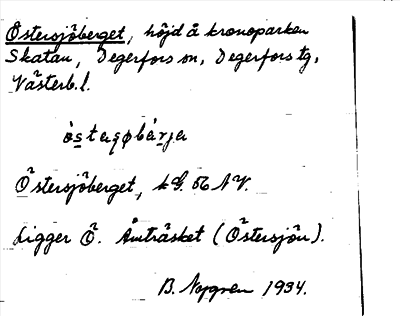 Östersjöberget, höjd å kronoparken
Skatan, Degerfors sn, Degerfors tg,
Västerb. l.
Östersjöberget, k G. 52 NV.
Ligger Ö. Åmträsket (Östersjön).
B. Nygren 1934.